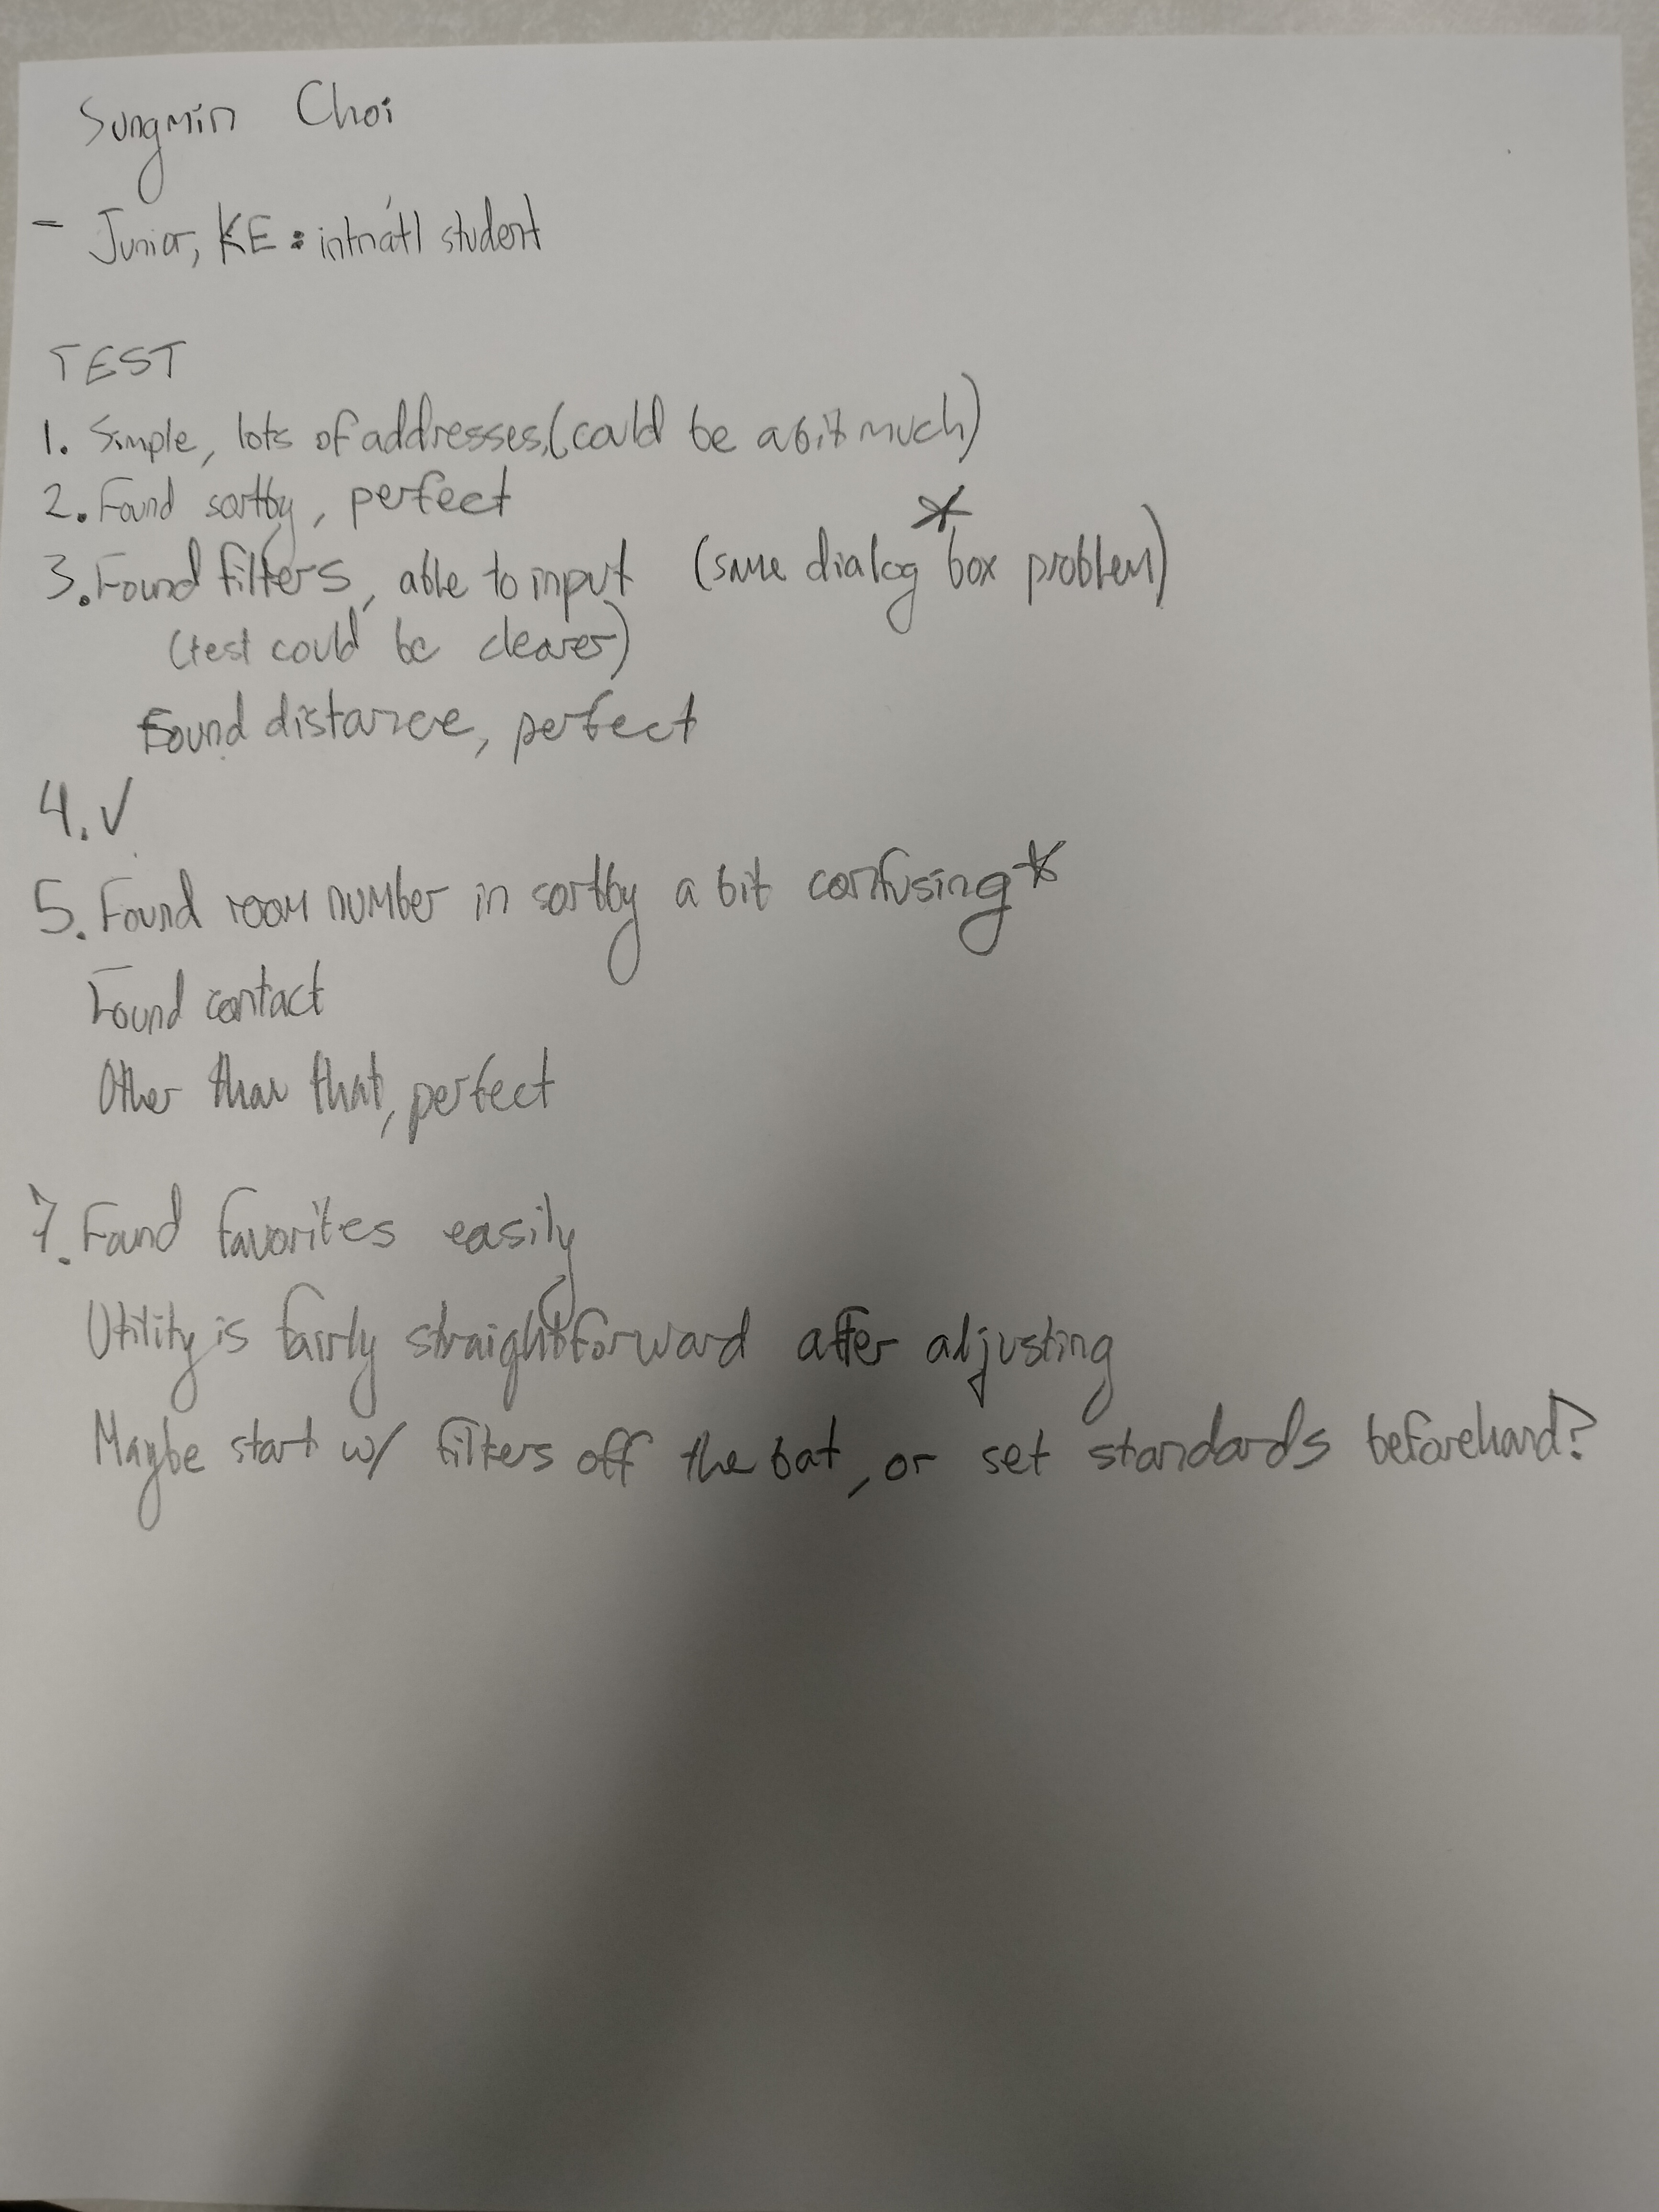 Sungmin Choi
- Junior, KE: intn'atl student
TEST
1. Simple, lots of addresses, (could be a bit much)
2. Found sortby, perfect
*
3. Found filters, able to input (same dialog box problem)
(test could be clearer)
Found distance, perfect
4. ✓
5. Found room number in sortby a bit confusing *
Found contact
Other than that, perfect
7. Found favorites easily
Utility is fairly straightforward after adjusting
Maybe start w/ filters off the bat, or set standards beforehand?